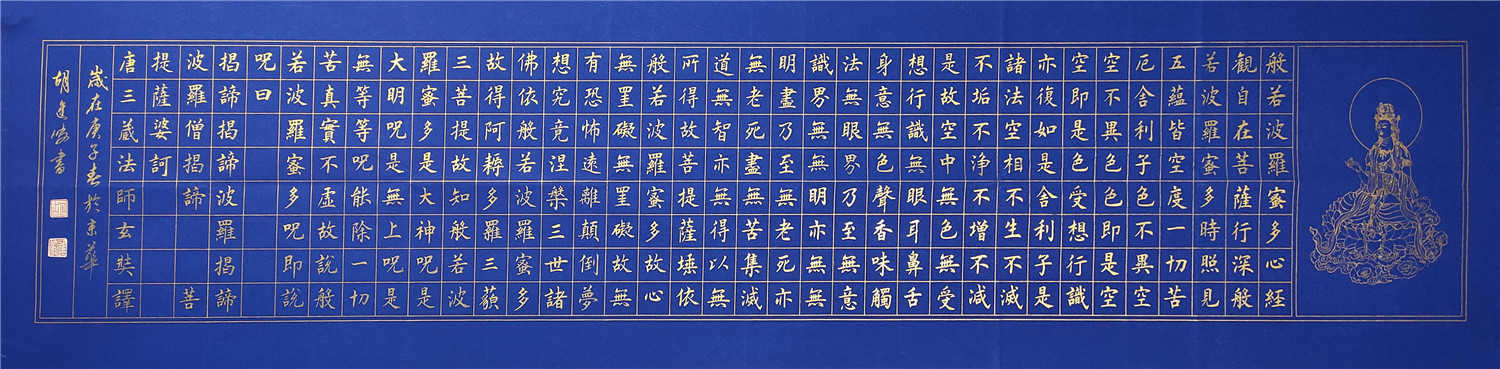 般若波羅蜜多心經
觀自在菩薩行深般
若波羅蜜多時照見
五蘊皆空度一切苦
厄舍利子色不異空
空不異色色即是空
空即是色受想行識
亦復如是舍利子是
諸法空相不生不滅
不垢不净不增不减
是故空中無色無受
想行識無眼耳鼻舌
身意無色聲香味觸
法無眼界乃至無意
識界無無明亦無無
明盡乃至無老死亦
無老死盡無苦集滅
道無智亦無得以無
所得故菩提薩埵依
般若波羅蜜多故心
無罣礙無罣礙故無
有恐怖遠離顛倒夢
想究竟涅槃三世諸
佛依般若波羅蜜多
故得阿耨多羅三藐
三菩提故知般若波
羅蜜多是大神呪是
大明呪是無上呪是
無等等呪能除一切
苦真實不虛故說般
若波羅蜜多呪即說
呪曰
揭諦揭諦波羅揭諦
波羅僧揭諦菩
提薩婆訶
唐三藏法師玄奘譯
歲在庚子春於京華
胡書